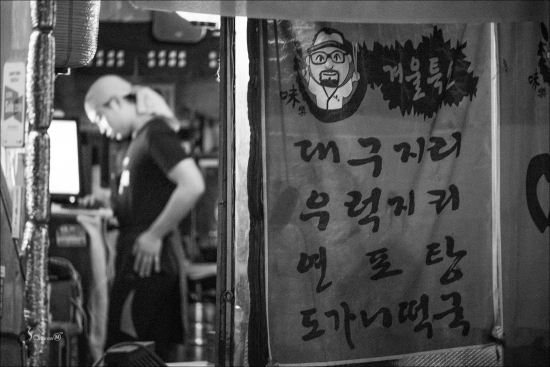 겨울특!
味
味
대구지리
우럭지리
연포탕
도가니떡국